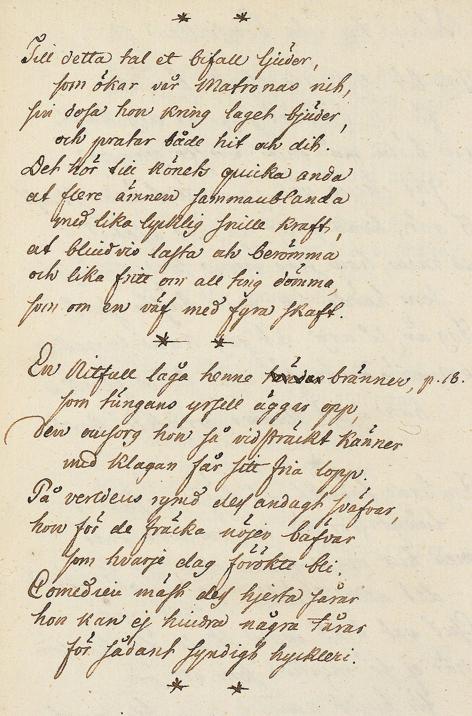 * *
Till detta tal et bifall ljüder,
som ökar vår Matronas nit,
sin dosa hon kring laget bjüder,
och pratar både hit och dit.
Det hör till könets quicka anda
at flere ämnen sammanblanda
med lika lycklig snille kraft,
at blindvis lasta och berömma
och lika fritt om all ting dömma,
som om en väf med fyra skaft.
* *
En Nitfull låga henne bränner, p. 18.
som tüngans yrsell äggar opp,
den omsorg hon så vidsträckt känner
med klagan får sitt fria lopp.
På verldens rymd des andagt sväfvar,
hon för de fräcka nöjen bäfvar
som hvarje dag förökte bli.
Comedien mäst des hjerta sårar
hon kan ej hindra några tårar
för sådant syndigt hyckleri.
* *